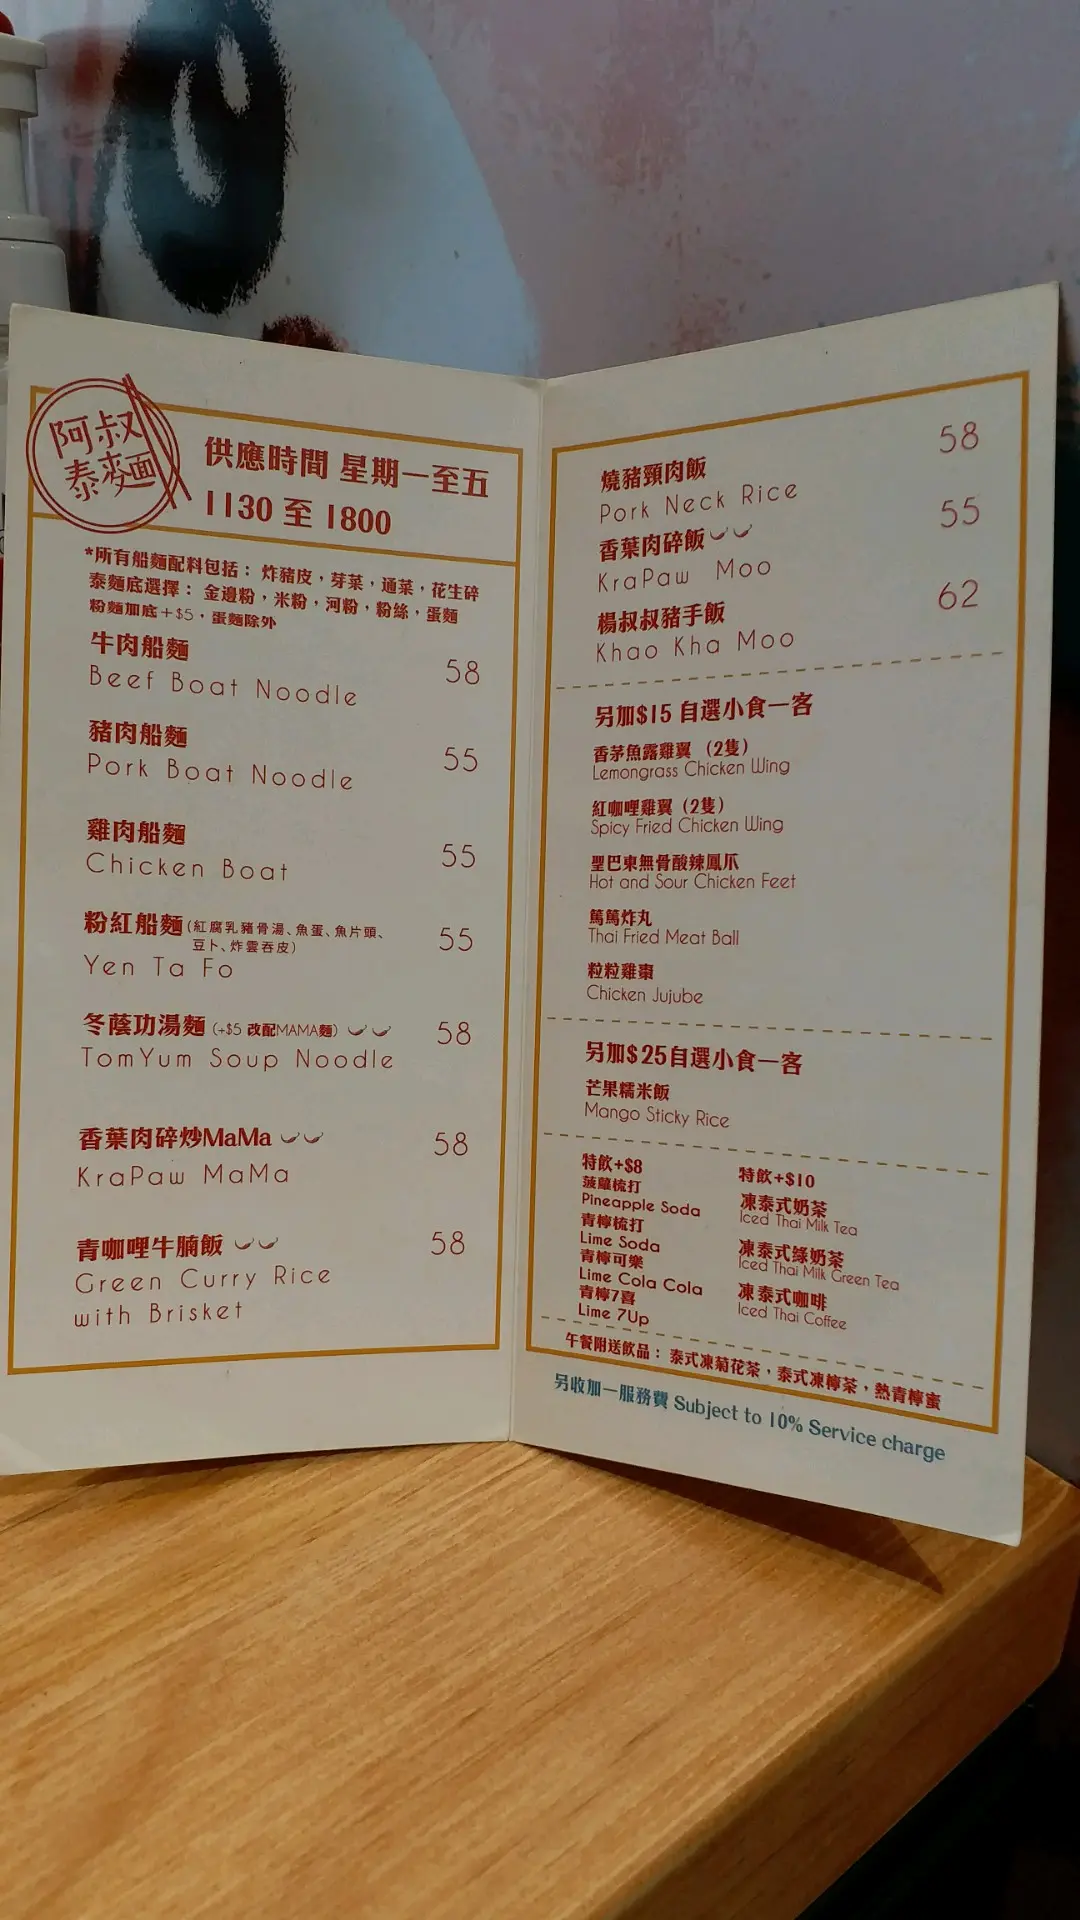 阿叔
泰麥面
供應時間 星期一至五
1130 至 1800
*所有船麵配料包括：炸豬皮，芽菜，通菜，花生碎
泰麵底選擇：金邊粉，米粉，河粉，粉絲，蛋麵
粉麵加底+$5，蛋麵除外
牛肉船麵
Beef Boat Noodle 58
豬肉船麵
Pork Boat Noodle 55
雞肉船麵
Chicken Boat 55
粉紅船麵 (紅腐乳豬骨湯、魚蛋、魚片頭、
豆卜、炸雲吞皮) 55
Yen Ta Fo
冬蔭功湯麵 (+$5 改配MAMA麵) 58
TomYum Soup Noodle
香葉肉碎炒MaMa 58
KraPaw MaMa
青咖哩牛腩飯 58
Green Curry Rice
with Brisket
燒豬頸肉飯 58
Pork Neck Rice
香葉肉碎飯 55
KraPaw Moo
楊叔叔豬手飯 62
Khao Kha Moo
另加$15 自選小食一客
香茅魚露雞翼 （2隻）
Lemongrass Chicken Wing
紅咖哩雞翼（2隻）
Spicy Fried Chicken Wing
聖巴東無骨酸辣鳳爪
Hot and Sour Chicken Feet
篤篤炸丸
Thai Fried Meat Ball
粒粒雞棗
Chicken Jujube
另加$25自選小食一客
芒果糯米飯
Mango Sticky Rice
特飲+$8
菠蘿梳打
Pineapple Soda
青檸梳打
Lime Soda
青檸可樂
Lime Cola Cola
青檸7喜
Lime 7Up
特飲+$10
凍泰式奶茶
Iced Thai Milk Tea
凍泰式綠奶茶
Iced Thai Milk Green Tea
凍泰式咖啡
Iced Thai Coffee
午餐附送飲品：泰式凍菊花茶，泰式凍檸茶，熱青檸蜜
另收加一服務費 Subject to 10% Service charge